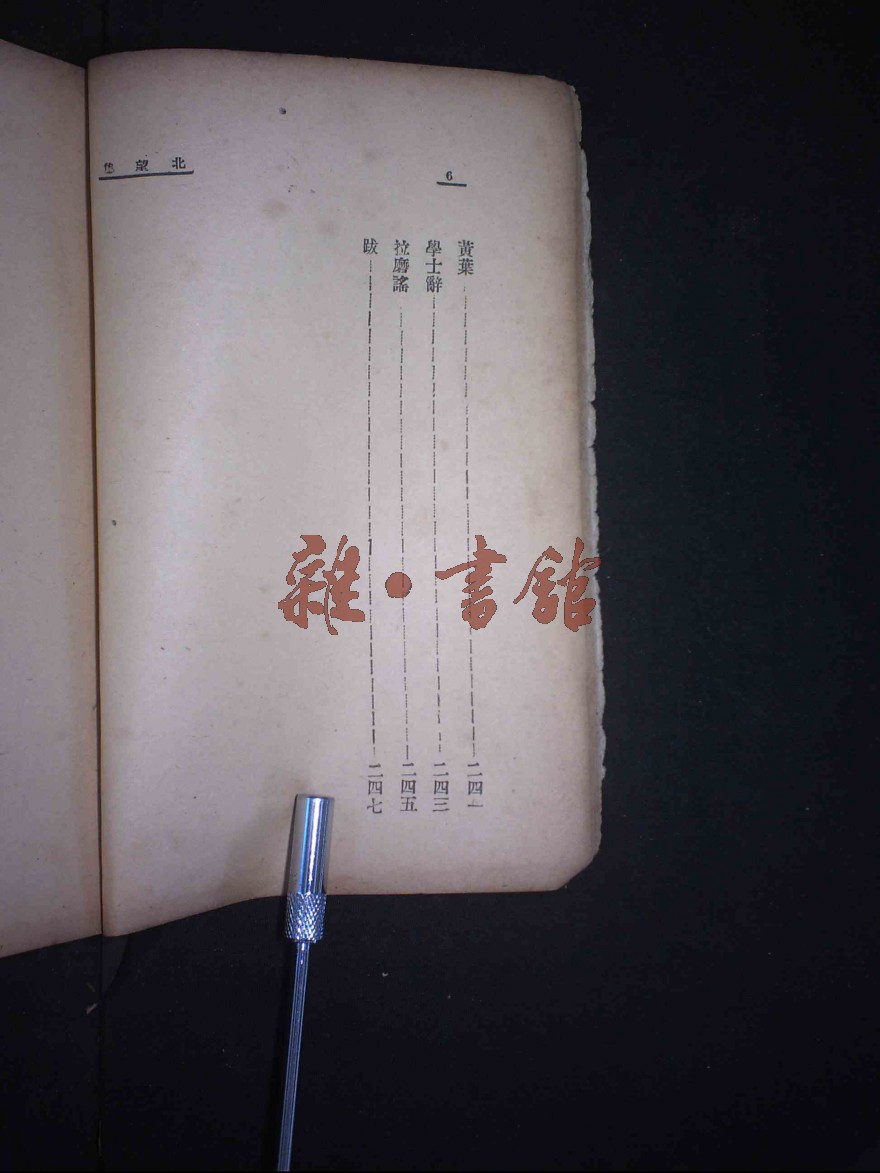 6
北望集
黃葉 二四一
學士辭 二四三
拉磨謠 二四五
跋 二四七
雜·書館